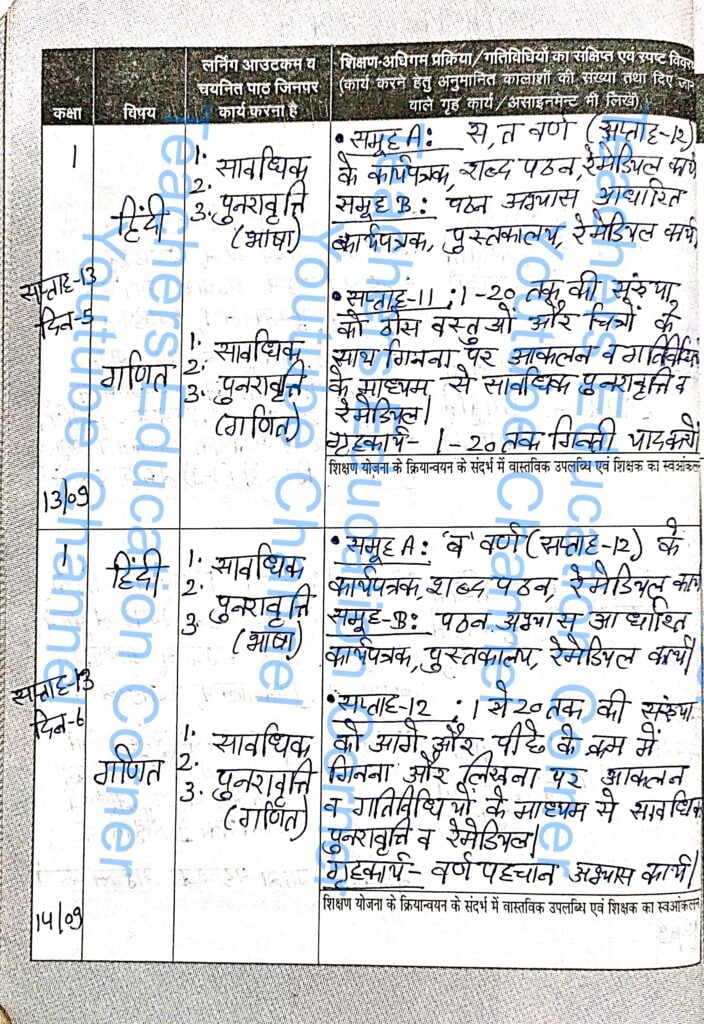 कक्षा
विषय
लर्निंग आउटकम व
चयनित पाठ जिनपर
कार्य करना है
शिक्षण-अधिगम प्रक्रिया/गतिविधियों का संक्षिप्त एवं स्पष्ट विवर
(कार्य करने हेतु अनुमानित कालांशों की संख्या तथा दिए जाने
वाले गृह कार्य/असाइनमेन्ट भी लिखें)
1
हिंदी
सप्ताह-13
दिन-5
1. सावधिक
2.
3. पुनरावृत्ति
(भाषा)
• समूह A: स, त वर्ण (सप्ताह-12)
के कार्यपत्रक, शब्द पठन, रेमेडियल कार्य
समूह B: पठन अभ्यास आधारित
कार्यपत्रक, पुस्तकालय, रेमेडियल कार्य।
गणित
1. सावधिक
2.
3. पुनरावृत्ति
(गणित)
• सप्ताह-11 : 1-20 तक की संख्या
को ठोस वस्तुओं और चित्रों के
साथ गिनना पर आकलन व गतिविधि
के माध्यम से सावधिक पुनरावृत्ति व
रेमेडियल।
गृहकार्य- 1-20 तक गिनती याद करो।
शिक्षण योजना के क्रियान्वयन के संदर्भ में वास्तविक उपलब्धि एवं शिक्षक का स्वआंकल
13/09
1
हिंदी
सप्ताह-13
दिन-6
1. सावधिक
2.
3. पुनरावृत्ति
(भाषा)
• समूह A: 'ब' वर्ण (सप्ताह-12) के
कार्यपत्रक, शब्द पठन, रेमेडियल कार्य
समूह-B: पठन अभ्यास आधारित
कार्यपत्रक, पुस्तकालय, रेमेडियल कार्य।
गणित
1. सावधिक
2.
3. पुनरावृत्ति
(गणित)
• सप्ताह-12 : 1 से 20 तक की संख्या
को आगे और पीछे के क्रम में
गिनना और लिखना पर आकलन
व गतिविधियों के माध्यम से सावधिक
पुनरावृत्ति व रेमेडियल।
गृहकार्य- वर्ण पहचान अभ्यास कार्य।
शिक्षण योजना के क्रियान्वयन के संदर्भ में वास्तविक उपलब्धि एवं शिक्षक का स्वआंकलन
14/09
Teachers Education Corner
Youtube Channel
Teachers Education Corner
Youtube Channel